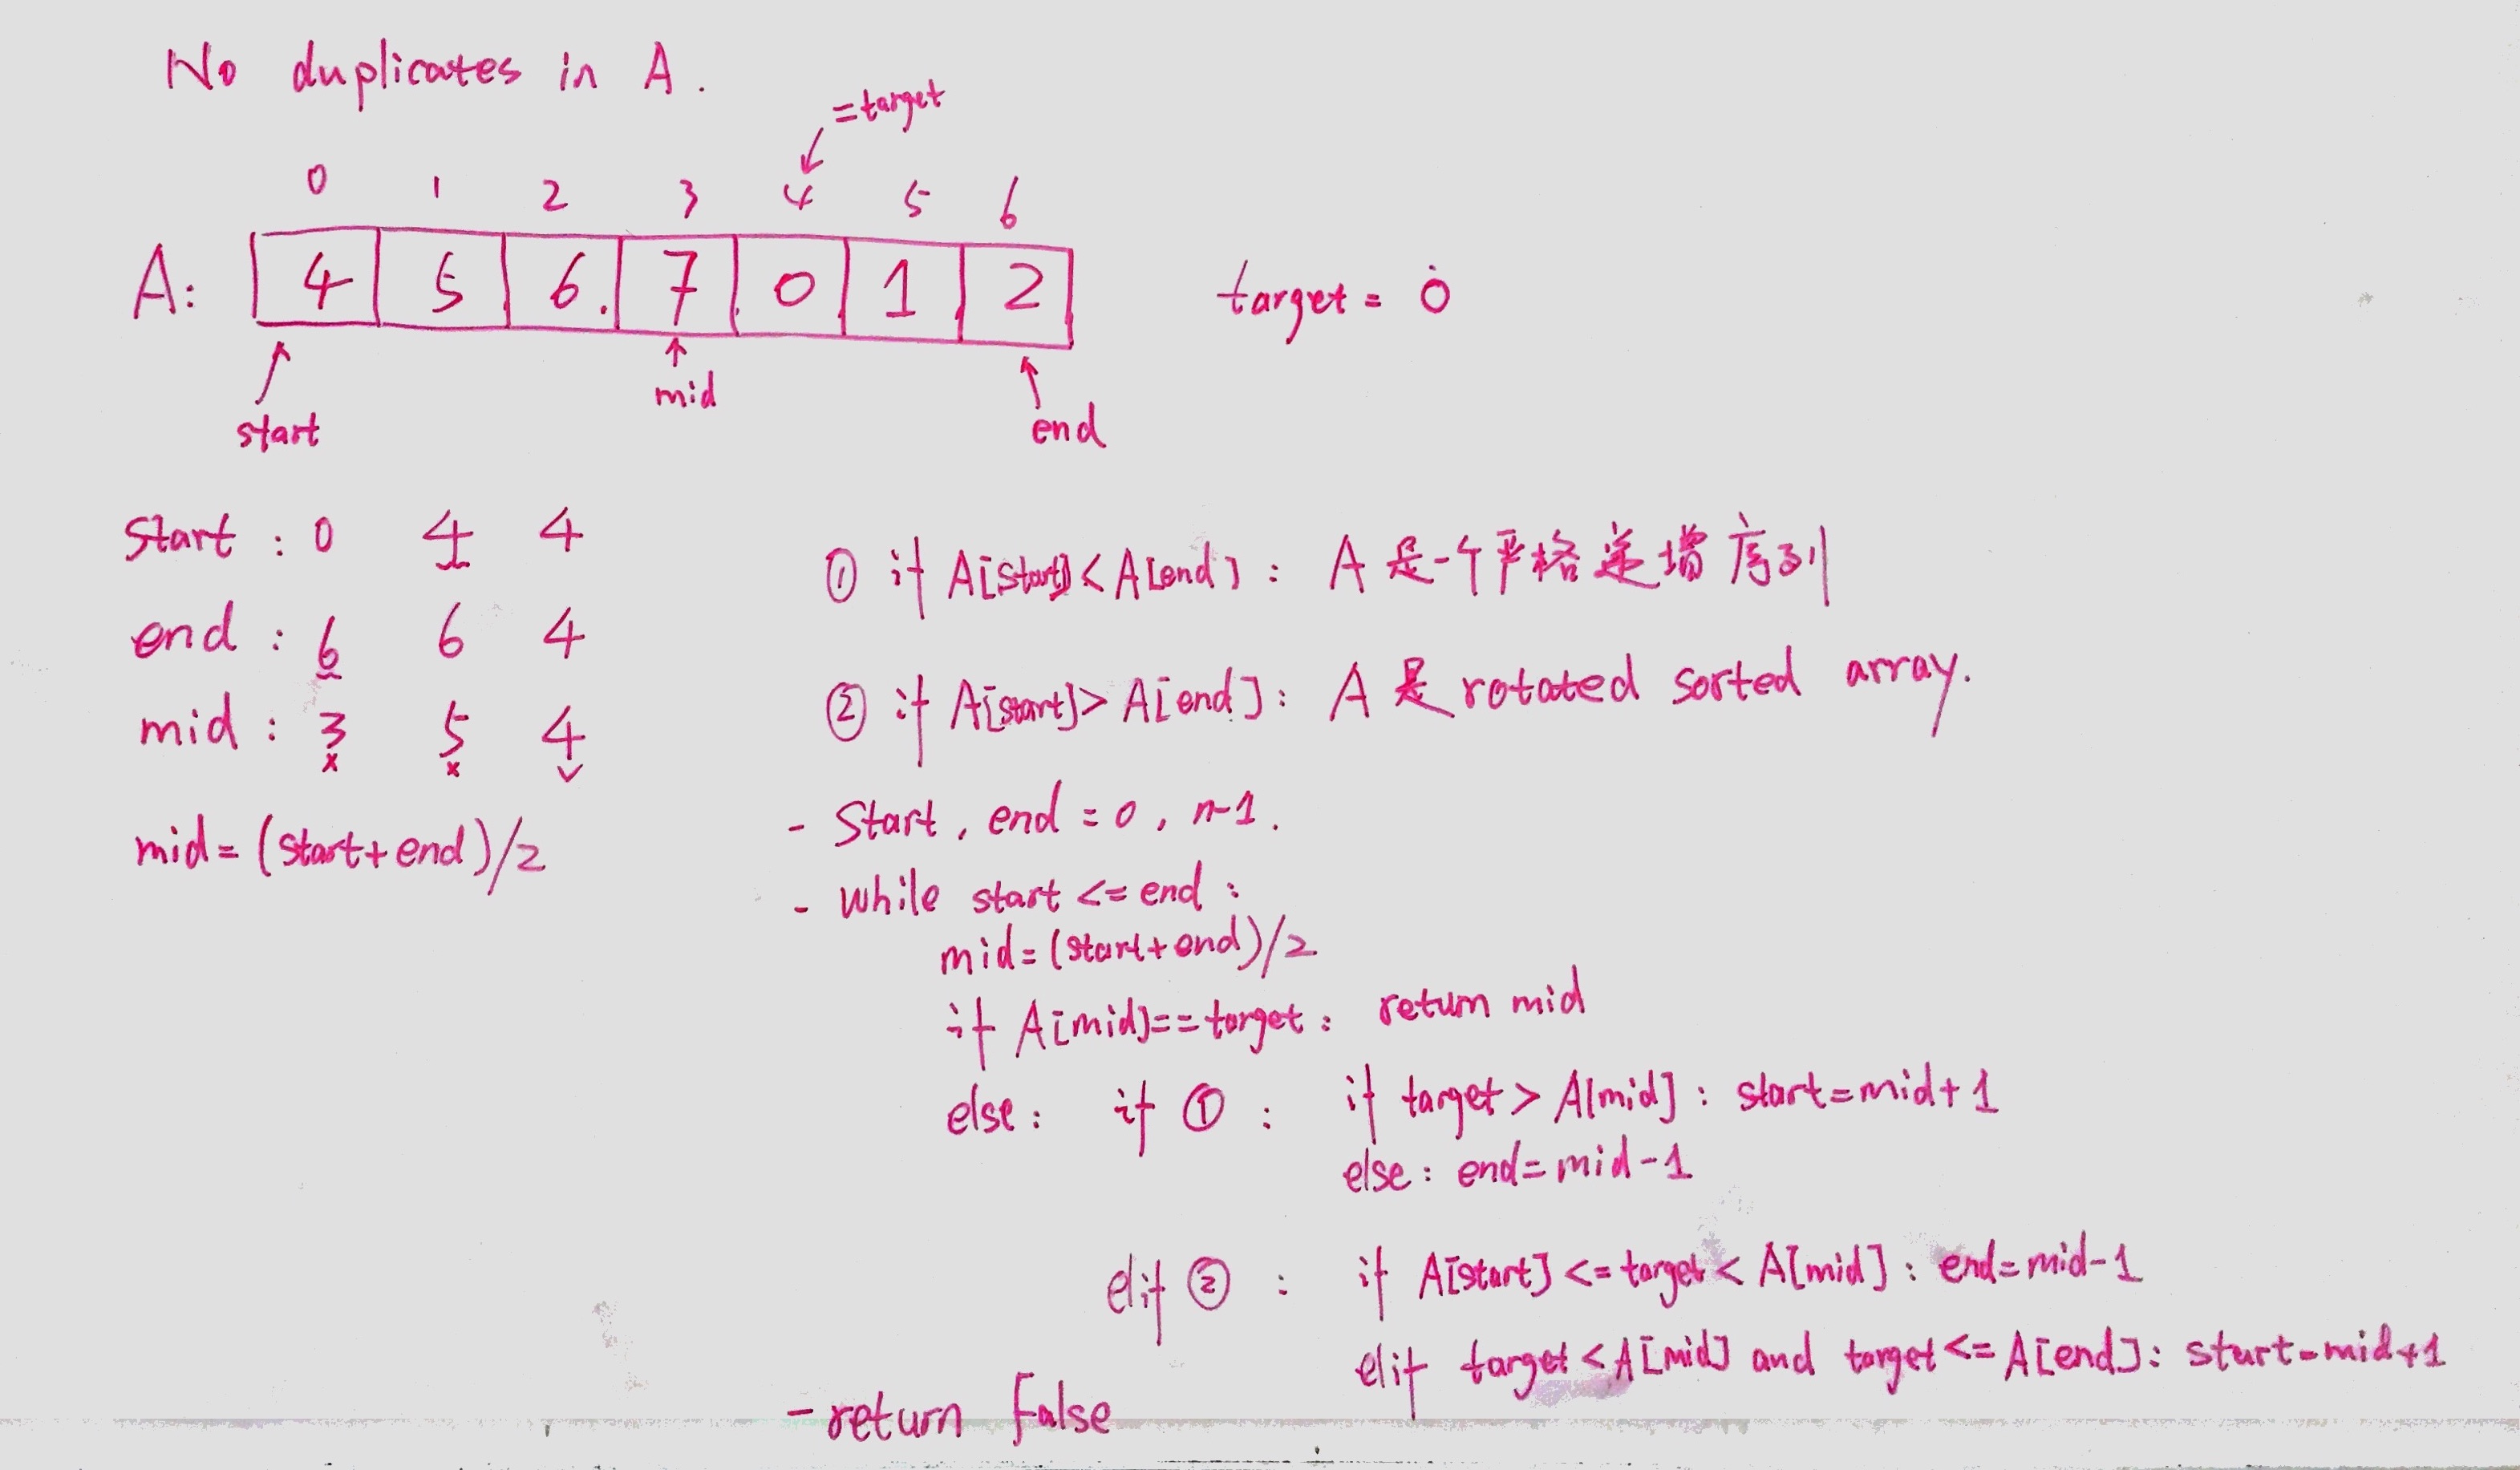 No duplicates in A.
=target
0 1 2 3 4 5 6
A: 4 5 6 7 0 1 2
target = 0
start mid end
start : 0 4 4
end : 6 6 4
mid : 3 5 4
x x ✓
mid=(start+end)/2
① if A[start]<A[end]: A 是一个严格递增序列
② if A[start]>A[end]: A 是 rotated sorted array.
- Start, end = 0, n-1.
- While start <= end :
mid=(start+end)/2
if A[mid]==target: return mid
else: if ① : if target > A[mid] : start=mid+1
else: end=mid-1
elif ② : if A[start] <= target < A[mid] : end=mid-1
elif target < A[mid] and target <= A[end]: start=mid+1
- return False